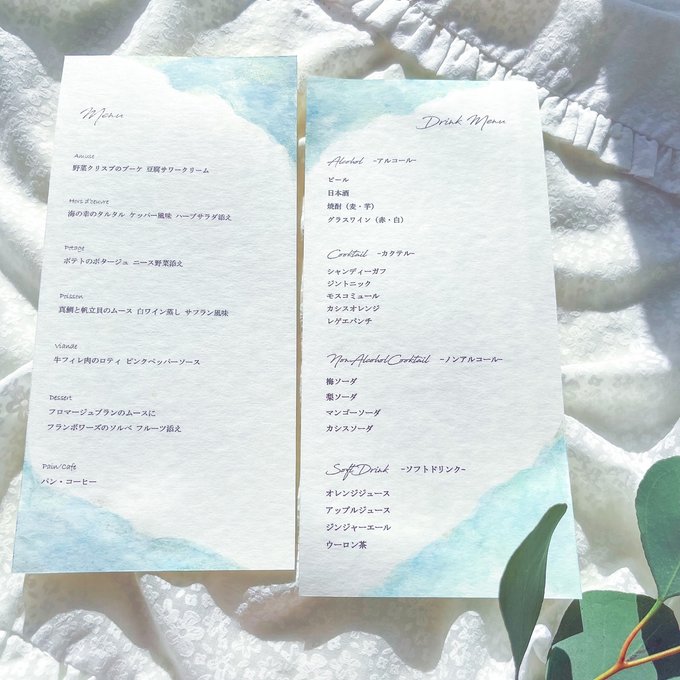 Menu
Amuse
野菜クリスプのブーケ 豆腐サワークリーム
Hors d'oeuvre
海の幸のタルタル ケッパー風味 ハーブサラダ添え
Potage
ポテトのポタージュ ニース野菜添え
Poisson
真鯛と帆立貝のムース 白ワイン蒸し サフラン風味
Viande
牛フィレ肉のロティ ピンクペッパーソース
Dessert
フロマージュブランのムースに
フランボワーズのソルベ フルーツ添え
Pain/Cafe
パン・コーヒー
Drink Menu
Alcohol -アルコール-
ビール
日本酒
焼酎（麦・芋）
グラスワイン（赤・白）
Cocktail -カクテル-
シャンディーガフ
ジントニック
モスコミュール
カシスオレンジ
レゲエパンチ
NonAlcoholCocktail -ノンアルコール-
梅ソーダ
梨ソーダ
マンゴーソーダ
カシスソーダ
SoftDrink -ソフトドリンク-
オレンジジュース
アップルジュース
ジンジャーエール
ウーロン茶